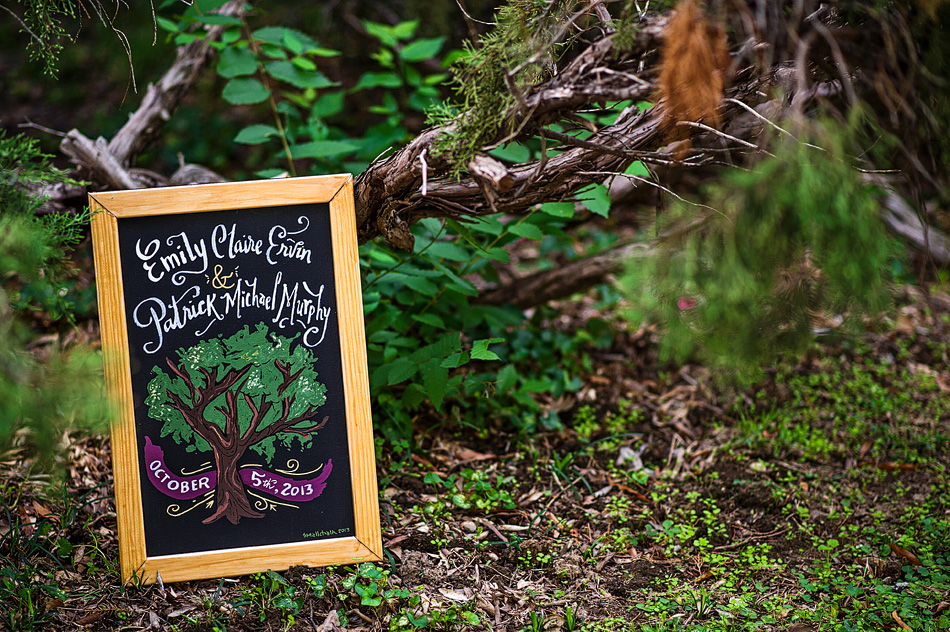 Emily Claire Ervin
&
Patrick Michael Murphy
OCTOBER 5th, 2013